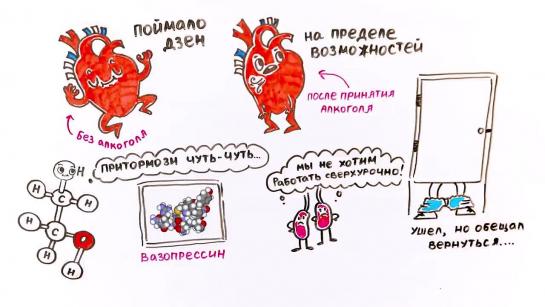 ПОЙМАЛО
ДЗЕН
НА ПРЕДЕЛЕ
ВОЗМОЖНОСТЕЙ
БЕЗ АЛКОГОЛЯ
ПОСЛЕ ПРИНЯТИЯ
АЛКОГОЛЯ
H
ПРИТОРМОЗИ ЧУТЬ-ЧУТЬ...
H
C
H
H
C
H
O
H
ВАЗОПРЕССИН
МЫ НЕ ХОТИМ
РАБОТАТЬ СВЕРХУРОЧНО!
УШЕЛ, НО ОБЕЩАЛ
ВЕРНУТЬСЯ....